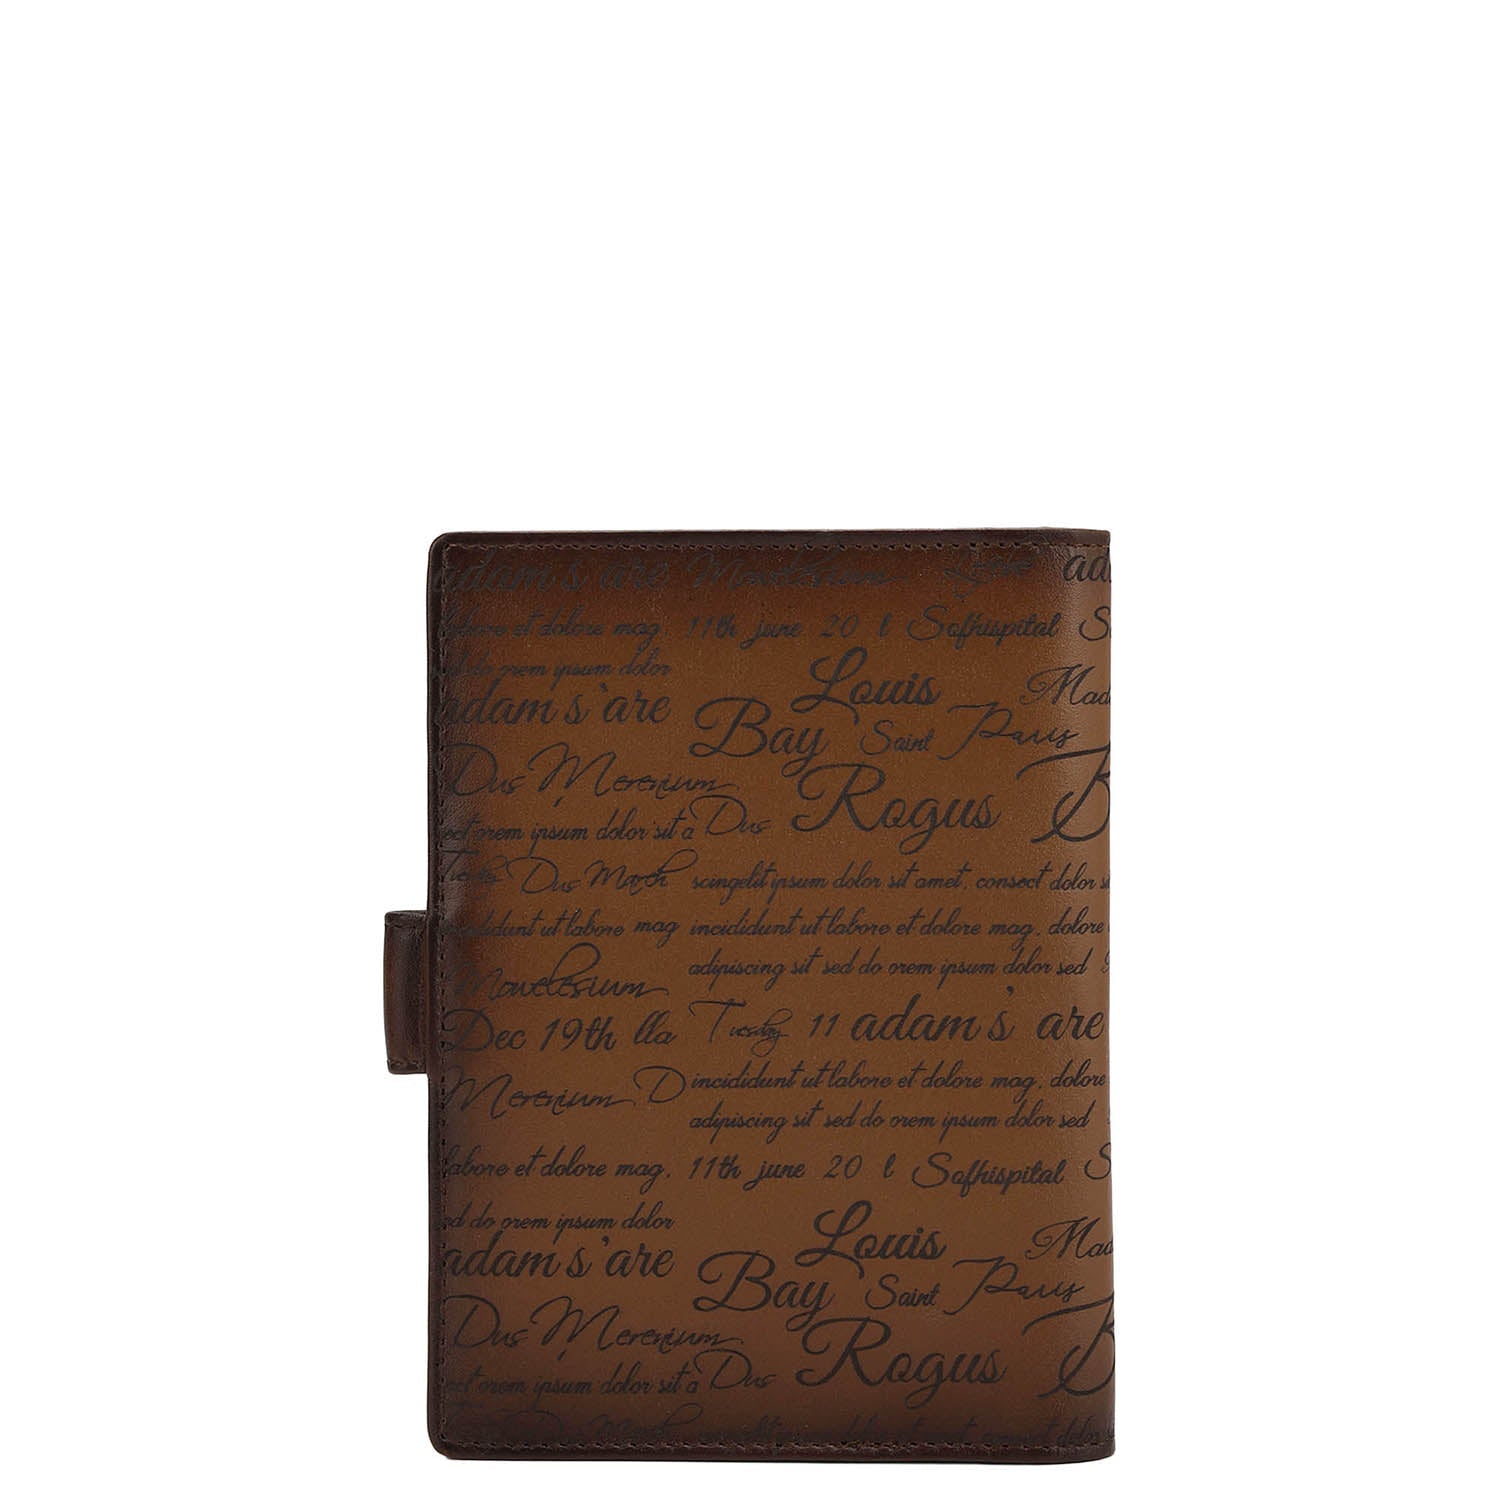 adam's are Mowelesium ad
labore et dolore mag. 11th june 20 l Safhispital S
do orem ipsum dolor
Louis Mad
adam's'are Bay Saint Paris
Dus Merenium Rogus B
ect orem ipsum dolor sit a Dus
Dus March scingelit ipsum dolor sit amet, consect dolor si
incididunt ut labore mag incididunt ut labore et dolore mag, dolore
adipiscing sit sed do orem ipsum dolor sed
Mowelesium
Dec 19th lla Tuesday 11 adam's' are
Merenium D incididunt ut labore et dolore mag, dolore
adipiscing sit sed do orem ipsum dolor sed
labore et dolore mag. 11th june 20 l Safhispital S
ed do orem ipsum dolor
Louis Mad
adam's'are Bay Saint Paris
Dus Merenium Rogus B
ect orem ipsum dolor sit a Dus